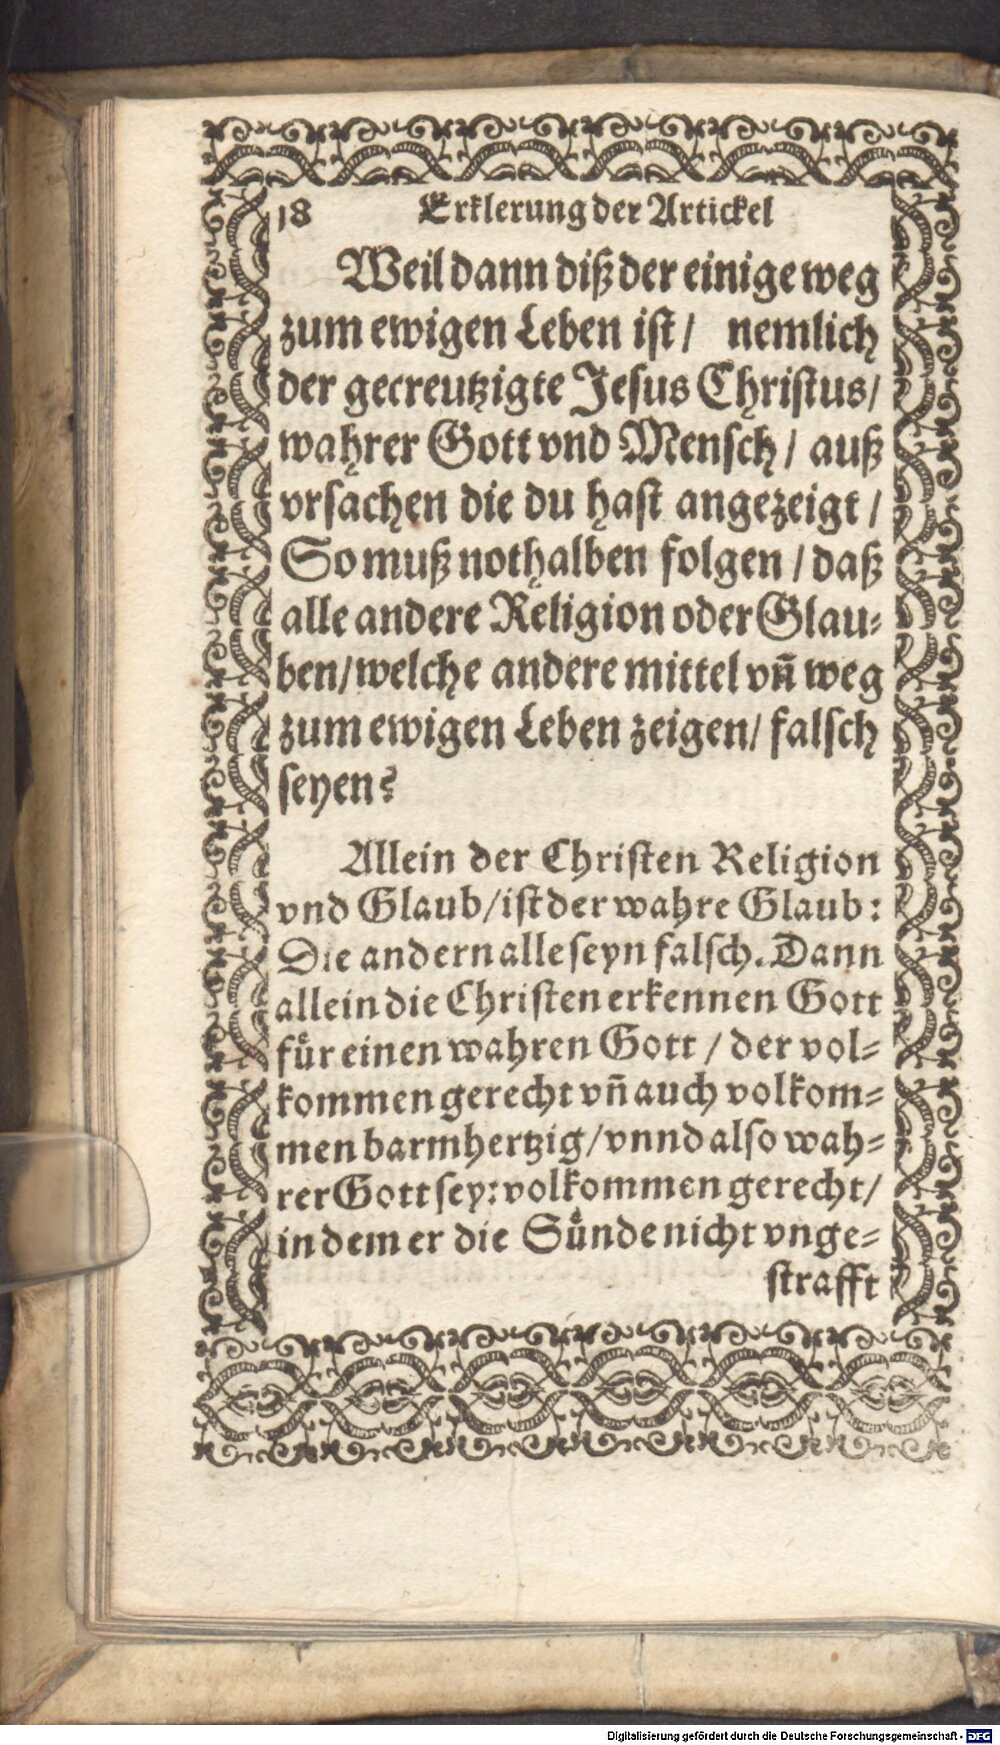 18 Erklerung der Artickel
Weil dann diß der einige weg
zum ewigen Leben ist / nemlich
der gecreutzigte Jesus Christus /
wahrer Gott vnd Mensch / auß
vrsachen die du hast angezeigt /
So muß nothalben folgen / daß
alle andere Religion oder Glau-
ben / welche andere mittel vn̄ weg
zum ewigen Leben zeigen / falsch
seyen?
Allein der Christen Religion
vnd Glaub / ist der wahre Glaub:
Die andern alle seyn falsch. Dann
allein die Christen erkennen Gott
fuͤr einen wahren Gott / der vol-
kommen gerecht vn̄ auch volkom-
men barmhertzig / vnnd also wah-
rer Gott sey: volkommen gerecht /
in dem er die Suͤnde nicht vnge-
strafft
Digitalisierung gefördert durch die Deutsche Forschungsgemeinschaft - DFG